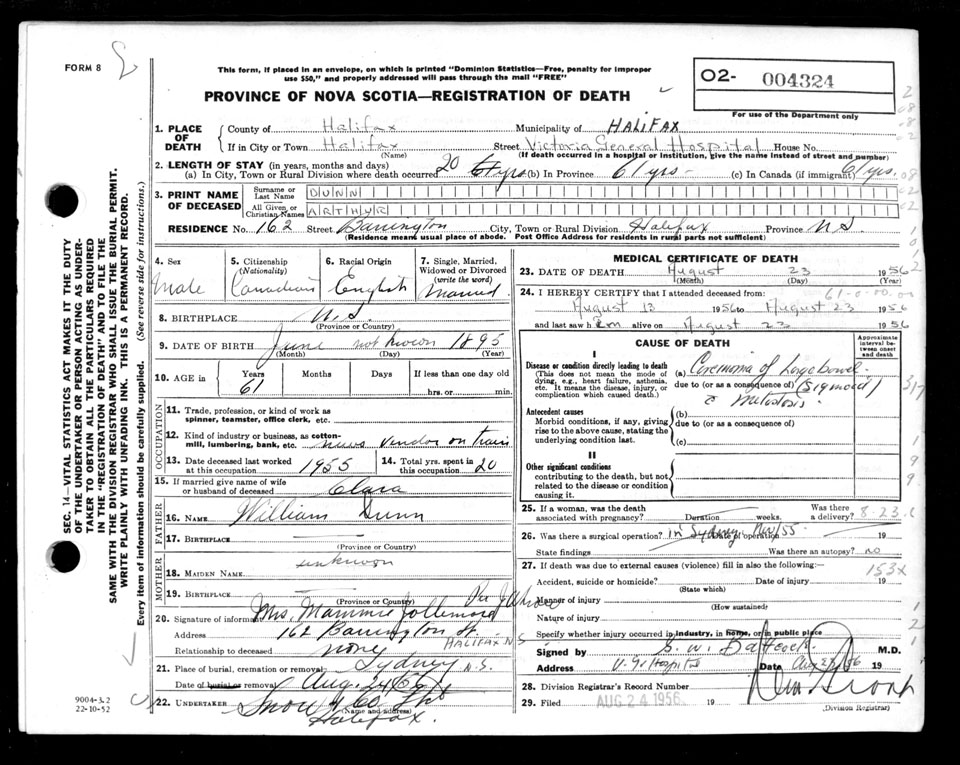 FORM 8
This form, if placed in an envelope, on which is printed "Dominion Statistics—Free, penalty for improper
use $50," and properly addressed will pass through the mail "FREE"
02- 004324
For use of the Department only
PROVINCE OF NOVA SCOTIA—REGISTRATION OF DEATH
1. PLACE OF DEATH
County of Halifax Municipality of HALIFAX
If in City or Town Halifax Street Victoria General Hospital House No.
(Name) (If death occurred in a hospital or institution, give the name instead of street and number)
2. LENGTH OF STAY (in years, months and days)
(a) In City, Town or Rural Division where death occurred 20 yrs (b) In Province 61 yrs - (c) In Canada (if immigrant) 61 yrs.
3. PRINT NAME OF DECEASED
Surname or Last Name DUNN
All Given or Christian Names ARTHUR
RESIDENCE No. 162 Street Barrington City, Town or Rural Division Halifax Province N.S.
(Residence means usual place of abode. Post Office Address for residents in rural parts not sufficient)
4. Sex
Male
5. Citizenship
(Nationality)
Canadian
6. Racial Origin
English
7. Single, Married, Widowed or Divorced
(write the word)
Married
8. BIRTHPLACE N.S.
(Province or Country)
9. DATE OF BIRTH June not known 1895
(Month) (Day) (Year)
10. AGE
Years Months Days If less than one day
61 hrs. or min.
OCCUPATION
11. Trade, profession, or kind of work as
spinner, teamster, office clerk, etc.
12. Kind of industry or business, as cotton-
mill, lumbering, bank, etc. news vendor on train
13. Date deceased last worked
at this occupation 1955
14. Total yrs. spent in
this occupation 20
15. If married give name of wife
or husband of deceased Clara
FATHER
16. NAME William Dunn
17. BIRTHPLACE
(Province or Country)
MOTHER
18. MAIDEN NAME unknown
19. BIRTHPLACE
(Province or Country)
20. Signature of informant Mrs. Mammie
Address 162 Barrington St. HALIFAX N.S
Relationship to deceased none
21. Place of burial, cremation or removal Sydney N.S.
Date of burial or removal Aug. 24/56
22. UNDERTAKER Snow & Co Ltd
(Name and address)
Halifax.
9004-3.2
22-10-52
SEC. 14—VITAL STATISTICS ACT MAKES IT THE DUTY
OF THE UNDERTAKER OR PERSON ACTING AS UNDER-
TAKER TO OBTAIN ALL THE PARTICULARS REQUIRED
IN THE "REGISTRATION OF DEATH" AND TO FILE THE
SAME WITH THE DIVISION REGISTRAR WHO SHALL ISSUE THE BURIAL PERMIT.
WRITE PLAINLY WITH UNFADING INK. THIS IS A PERMANENT RECORD.
Every item of information should be carefully supplied. (See reverse side for instructions.)
MEDICAL CERTIFICATE OF DEATH
23. DATE OF DEATH August 23 1956
(Month) (Day)
24. I HEREBY CERTIFY that I attended deceased from:
August 13 1956 to August 23 1956
and last saw him alive on August 23 1956
CAUSE OF DEATH
Approximate interval be-
tween onset
and death
I
Disease or condition directly leading to death
(This does not mean the mode of
dying, e.g., heart failure, asthenia,
etc. It means the disease, injury, or
complication which caused death.)
(a) Carcinoma of Large bowel.
due to (or as a consequence of) (Sigmoid)
Antecedent causes
Morbid conditions, if any, giving
rise to the above cause, stating the
underlying condition last.
(b)
due to (or as a consequence of)
(c)
II
Other significant conditions
contributing to the death, but not
related to the disease or condition
causing it.
25. If a woman, was the death
associated with pregnancy? Duration weeks. Was there
a delivery?
26. Was there a surgical operation? in Sydney Nov/55 Date of operation 19
State findings Was there an autopsy? no
27. If death was due to external causes (violence) fill in also the following:
Accident, suicide or homicide? Date of injury 19
(State which)
Manner of injury
(How sustained)
Nature of injury
Specify whether injury occurred in industry, in home, or in public place
Signed by M.D.
Address V.G. Hospital Date Aug 23/56 19
28. Division Registrar's Record Number
29. Filed AUG 24 1956 19
(Division Registrar)